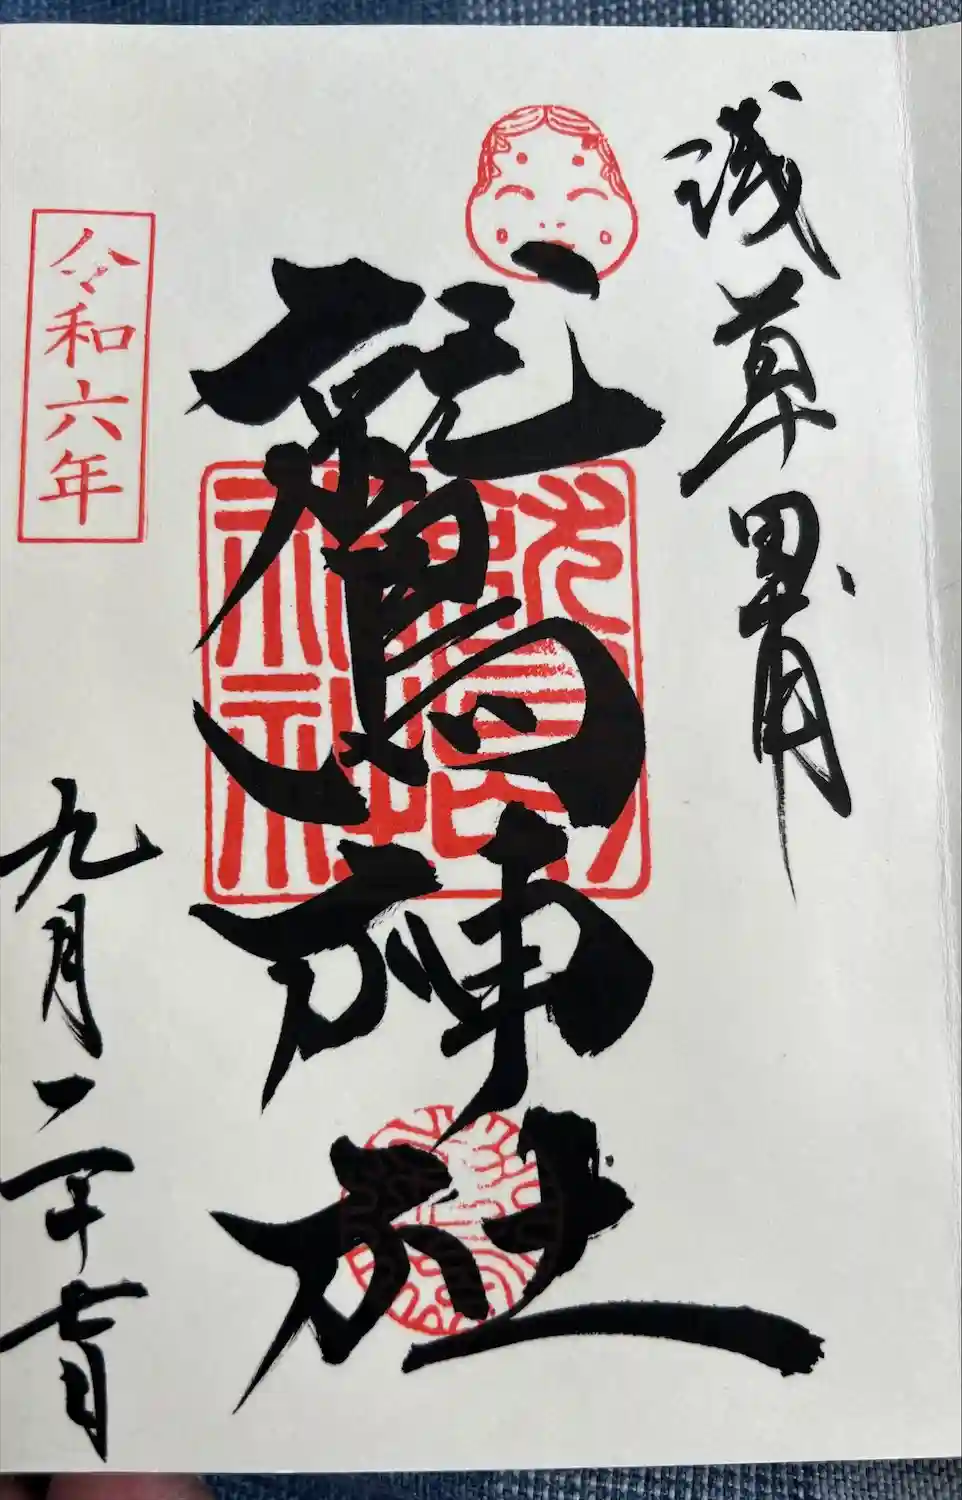 浅草田甫
鷲神社
令和六年
九月二十七日